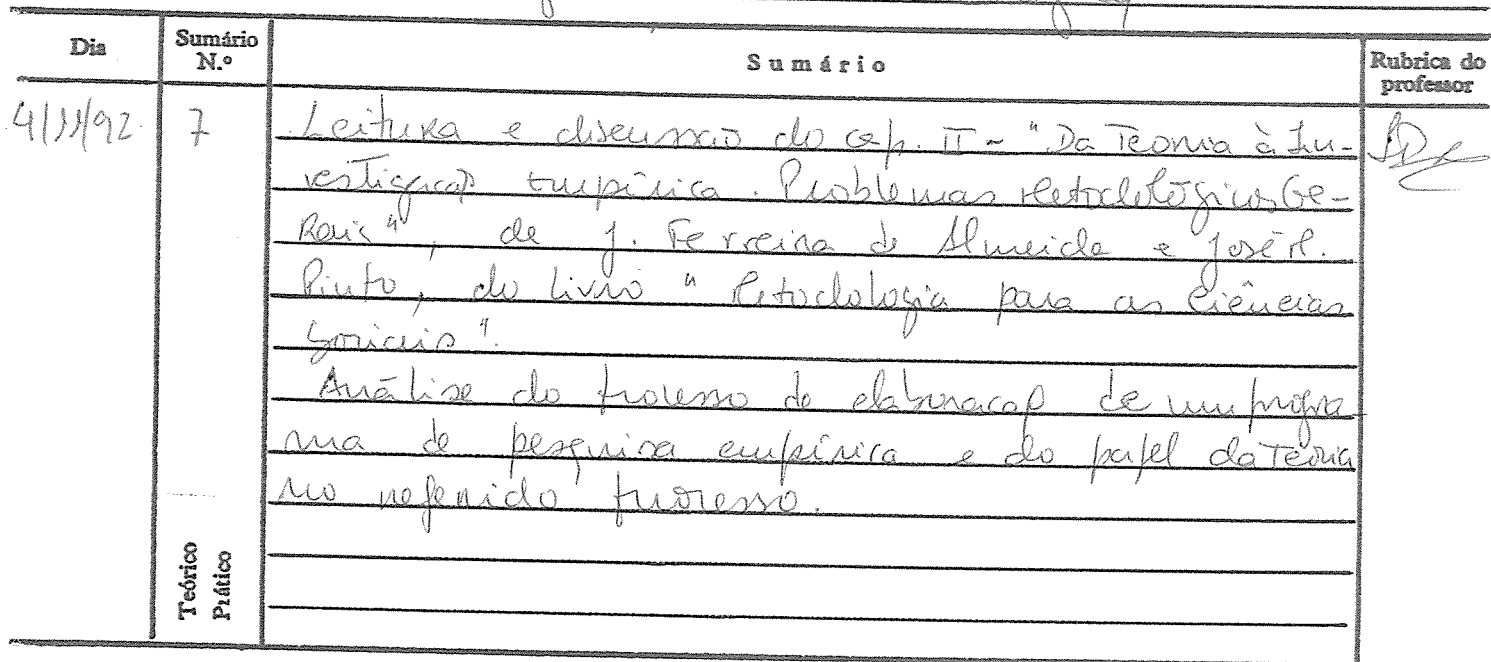 Dia
Sumário N.º
Sumário
Rubrica do professor
4/11/92
7
Leitura e discussão do cap. II - "Da Teoria à In-
vestigação Empírica. Problemas Metodológicos Ge-
Rais", de J. Ferreira de Almeida e José M.
Pinto, do Livro "Metodologia para as Ciências
Sociais".
Análise do processo de elaboração de um progra
ma de pesquisa empírica e do papel da Teoria
no referido processo.
Teórico
Prático